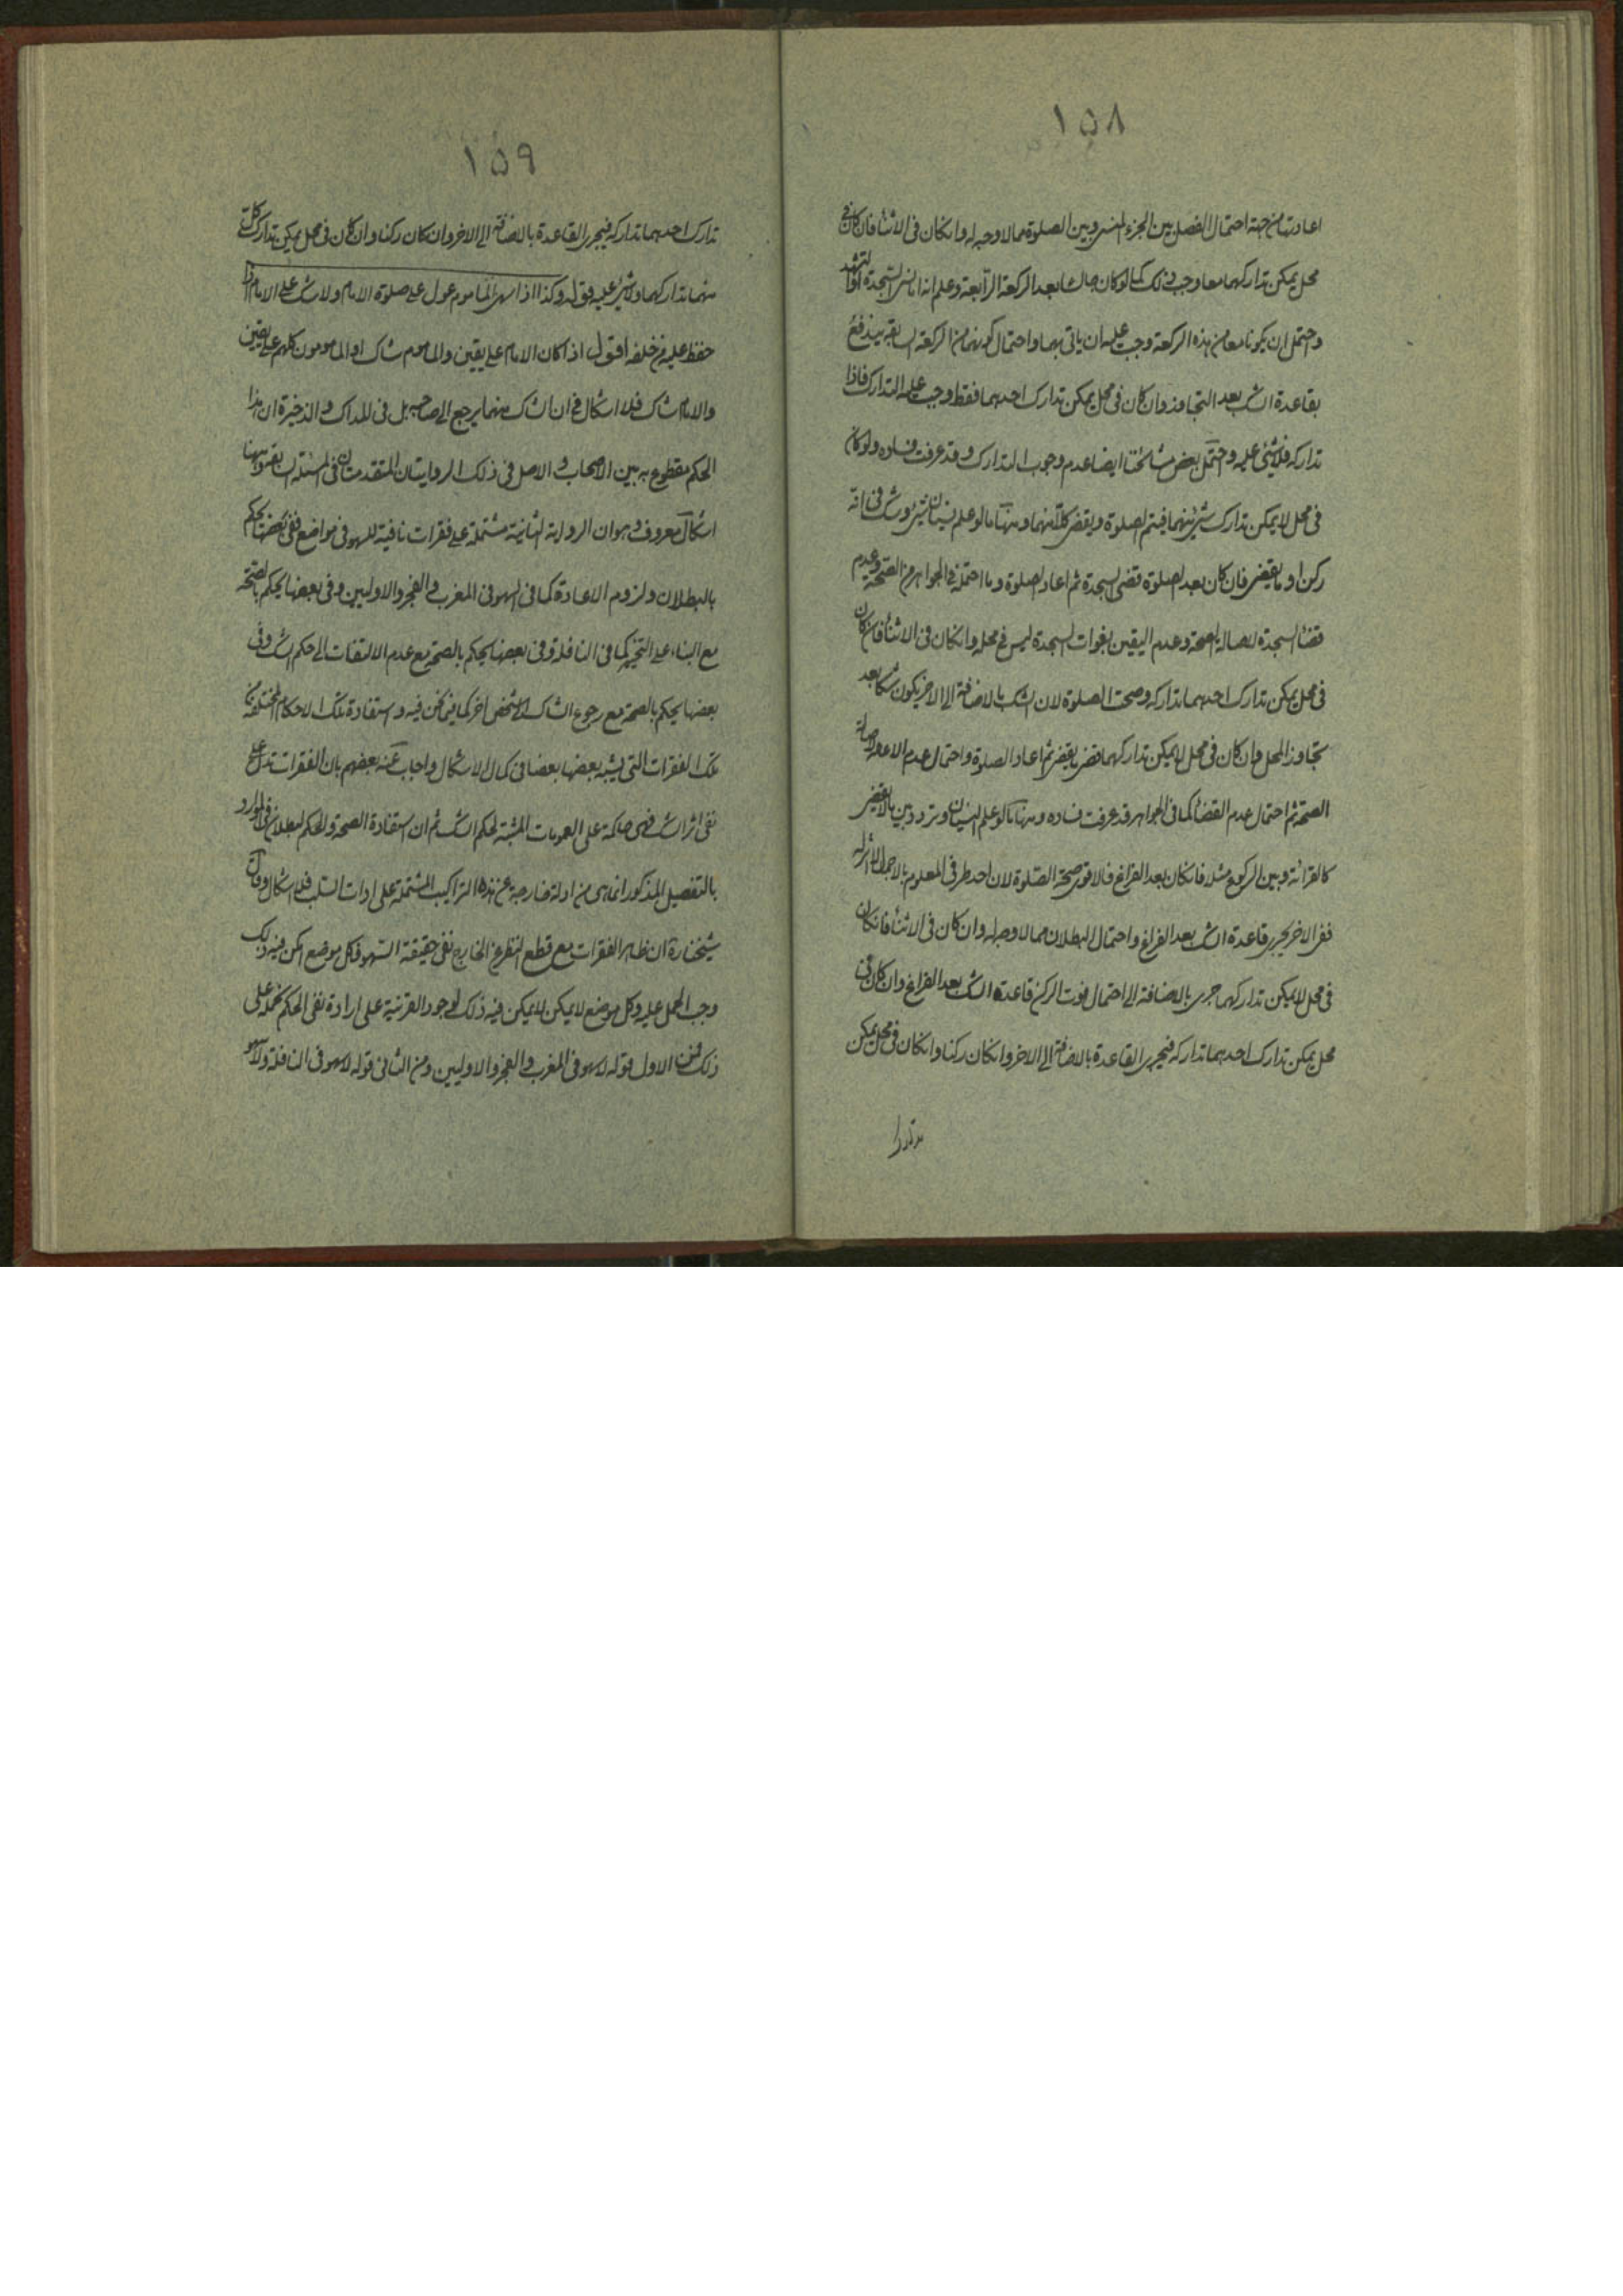 ١٥٨
اعادتها من جهة احتمال الفصل بين الجزء المنسي وبين الصلوة مما لا وجه له وانكان في الاثناء فان كان في
محل يمكن تداركهما معا وجب ذلك كما لو كان جالسا بعد الركعة الرابعة وعلم انه اما نسي السجدة او التشهد
واحتمل ان يكونا معا من هذه الركعة وجب عليه ان ياتي بهما واحتمال كونهما من الركعة السابقة يندفع
بقاعدة الشك بعد التجاوز وان كان في محل يمكن تدارك احدهما فقط وجب عليه التدارك فاذا
تداركه فلا شئ عليه واحتمل بعض مشائخنا ايضا عدم وجوب التدارك وقد عرفت فساده ولو كان
في محل لا يمكن تدارك شئ منهما فيتم الصلوة ويقضي كلا منهما ومنها ما لو علم نسيان شئ وشك في انه
ركن او ما يقضي فان كان بعد الصلوة قضى السجدة ثم اعاد الصلوة وما احتمله في الجواهر من الصحة وعدم
قضاء السجدة لاصالة الصحة وعدم اليقين بفوات السجدة ليس في محله وانكان في الاثناء فان كان
في محل يمكن تدارك احدهما تداركه وصحت الصلوة لان الشك بالاضافة الى الاخر يكون شكا بعد
تجاوز المحل وان كان في محل لا يمكن تداركهما قضى ما يقضي ثم اعاد الصلوة واحتمال عدم الاعادة لاصالة
الصحة ثم احتمال عدم القضاء كما في الجواهر قد عرفت فساده ومنها ما لو علم النسيان وتردد بين ما لا يقضي
كالقرائة وبين الركوع مثلا فانكان بعد الفراغ فالاقوى صحة الصلوة لان احد طرفي المعلوم بالاجمال لا اثر له
ففي الاخر يجري قاعدة الشك بعد الفراغ واحتمال البطلان مما لا وجه له وان كان في الاثناء فانكان
في محل لا يمكن تداركهما جرى بالاضافة الى احتمال فوت الركن قاعدة الشك بعد الفراغ وان كان في
محل يمكن تدارك احدهما تداركه فيجري القاعدة بالاضافة الى الاخر وانكان ركنا وانكان في محل يمكن
١٥٩
تدارك احدهما تداركه فيجري القاعدة بالاضافة الى الاخر وان كان ركنا وان كان في محل يمكن تدارك كل
منهما تداركهما ولا شئ عليه قوله وكذا اذا سهى الماموم عول على صلوة الامام ولا شك على الامام اذا
حفظ عليه من خلفه اقول اذا كان الامام على يقين والماموم شاك او المامومون كلهم على يقين
والامام شاك فلا اشكال في ان الشاك منهما يرجع الى صاحبه بل في المدارك والذخيرة ان هذا
الحكم مقطوع به بين الاصحاب والاصل في ذلك الروايتان المتقدمتان في المسئلة السابقة وفيهما
اشكال معروف وهو ان الرواية الثانية مشتملة على فقرات نافية للسهو في مواضع ففي بعضها يحكم
بالبطلان ولزوم الاعادة كما في السهو في المغرب والفجر والاوليين وفي بعضها يحكم بالصحة
مع البناء على التخيير كما في النافلة وفي بعضها يحكم بالصحة مع عدم الالتفات الى حكم الشك وفي
بعضها يحكم بالصحة مع رجوع الشاك الى شخص اخر كما فيما نحن فيه واستفادة تلك الاحكام المختلفة من
تلك الفقرات التي يشبه بعضها بعضا في كمال الاشكال واجاب عنه بعضهم بان الفقرات تدل على
نفي اثر الشك فهي حاكمة على العمومات المثبتة لحكم الشك ثم ان استفادة الصحة والحكم بالبطلان في الموارد
بالتفصيل المذكور انما هي من ادلة خارجة عن هذه التراكيب المشتملة على ادات السلب فلا اشكال وقال
شيخنا ره ان ظاهر الفقرات مع قطع النظر عن الخارج نفي حقيقة السهو فكل موضع امكن فيه ذلك
وجب الحمل عليه وكل موضع لا يمكن فيه ذلك لوجود القرينة على ارادة نفي الحكم نحمله على
ذلك فمن الاول قوله لا سهو في المغرب والفجر والاوليين ومن الثاني قوله لا سهو في النافلة ولا سهو